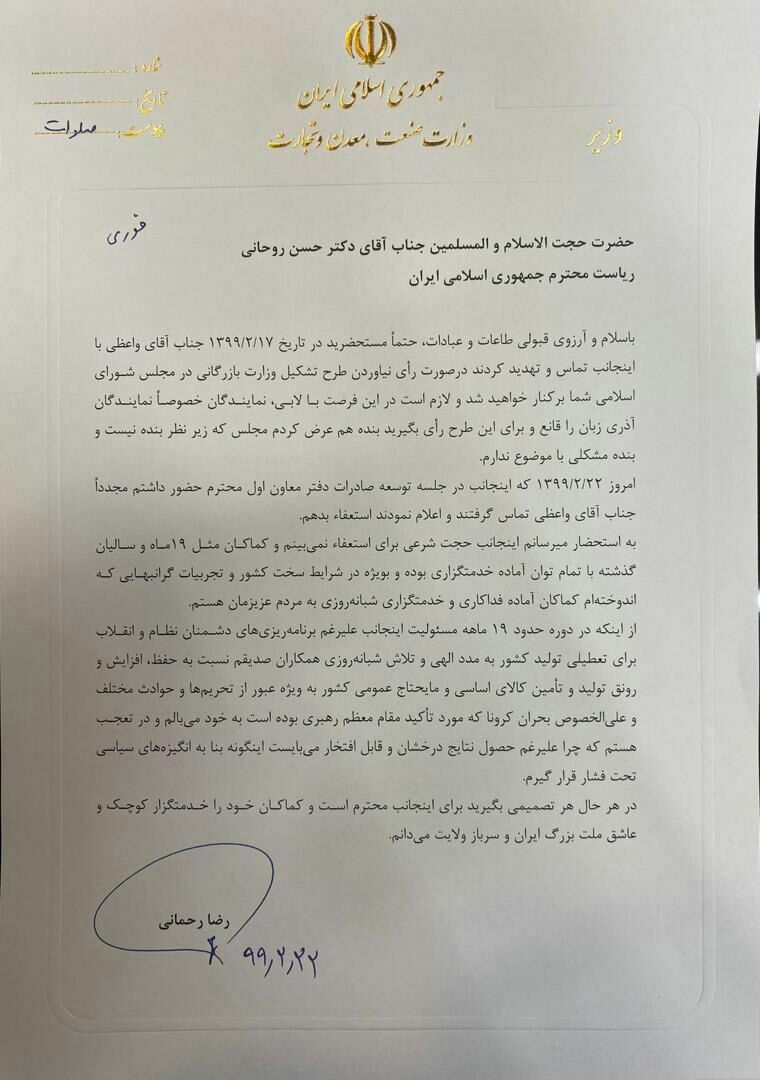 جمهوری اسلامی ایران
وزارت صنعت، معدن و تجارت
وزیر
شماره:
تاریخ:
پیوست: صلوات
فوری
حضرت حجت الاسلام و المسلمین جناب آقای دکتر حسن روحانی
ریاست محترم جمهوری اسلامی ایران
باسلام و آرزوی قبولی طاعات و عبادات، حتماً مستحضرید در تاریخ ۱۳۹۹/۲/۱۷ جناب آقای واعظی با
اینجانب تماس و تهدید کردند درصورت رأی نیاوردن طرح تشکیل وزارت بازرگانی در مجلس شورای
اسلامی شما برکنار خواهید شد و لازم است در این فرصت با لابی، نمایندگان خصوصاً نمایندگان
آذری زبان را قانع و برای این طرح رأی بگیرید بنده هم عرض کردم مجلس که زیر نظر بنده نیست و
بنده مشکلی با موضوع ندارم.
امروز ۱۳۹۹/۲/۲۲ که اینجانب در جلسه توسعه صادرات دفتر معاون اول محترم حضور داشتم مجدداً
جناب آقای واعظی تماس گرفتند و اعلام نمودند استعفاء بدهم.
به استحضار میرسانم اینجانب حجت شرعی برای استعفاء نمی‌بینم و کماکان مثل ۱۹ماه و سالیان
گذشته با تمام توان آماده خدمتگزاری بوده و بویژه در شرایط سخت کشور و تجربیات گرانبهایی که
اندوخته‌ام کماکان آماده فداکاری و خدمتگزاری شبانه‌روزی به مردم عزیزمان هستم.
از اینکه در دوره حدود ۱۹ ماهه مسئولیت اینجانب علیرغم برنامه‌ریزی‌های دشمنان نظام و انقلاب
برای تعطیلی تولید کشور به مدد الهی و تلاش شبانه‌روزی همکاران صدیقم نسبت به حفظ، افزایش و
رونق تولید و تأمین کالای اساسی و مایحتاج عمومی کشور به ویژه عبور از تحریم‌ها و حوادث مختلف
و علی‌الخصوص بحران کرونا که مورد تأکید مقام معظم رهبری بوده است به خود می‌بالم و در تعجب
هستم که چرا علیرغم حصول نتایج درخشان و قابل افتخار می‌بایست اینگونه بنا به انگیزه‌های سیاسی
تحت فشار قرار گیرم.
در هر حال هر تصمیمی بگیرید برای اینجانب محترم است و کماکان خود را خدمتگزار کوچک و
عاشق ملت بزرگ ایران و سرباز ولایت می‌دانم.
رضا رحمانی
۹۹٫۲٫۲۲